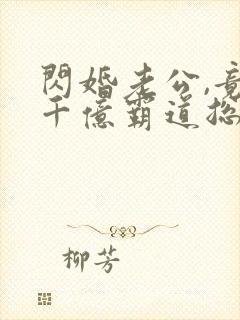 閃婚老公,竟
千億霸道總
柳芳